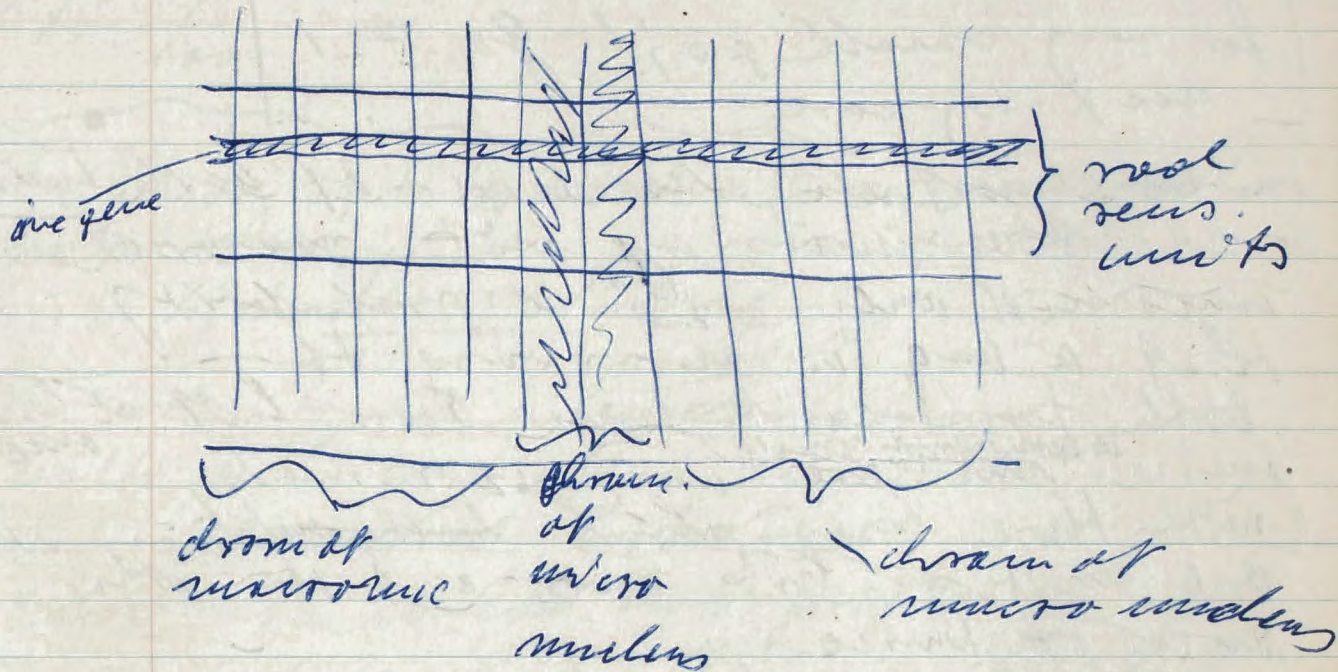 one gene
rad
sens.
units
chrom of
macronuc
chrom.
of
micro
nucleus
chrom of
macro nucleus